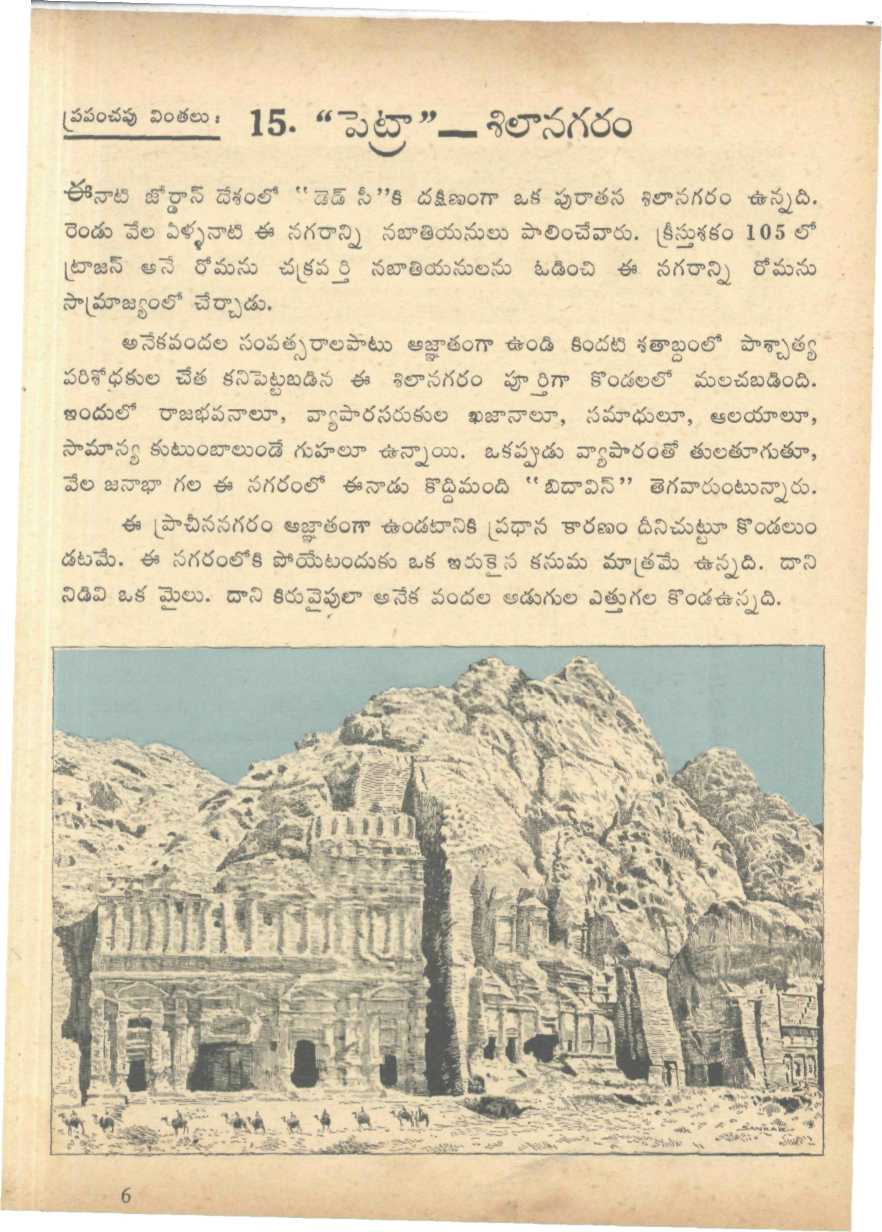 ప్రపంచపు వింతలు: 15. “పెట్రా”—శిలానగరం
ఈనాటి జోర్డాన్ దేశంలో “డెడ్ సీ”కి దక్షిణంగా ఒక పురాతన శిలానగరం ఉన్నది.
రెండు వేల ఏళ్ళనాటి ఈ నగరాన్ని నబాతియనులు పాలించేవారు. క్రీస్తుశకం 105 లో
ట్రాజన్ అనే రోమను చక్రవర్తి నబాతియనులను ఓడించి ఈ నగరాన్ని రోమను
సామ్రాజ్యంలో చేర్చాడు.
అనేకవందల సంవత్సరాలపాటు అజ్ఞాతంగా ఉండి కిందటి శతాబ్దంలో పాశ్చాత్య
పరిశోధకుల చేత కనిపెట్టబడిన ఈ శిలానగరం పూర్తిగా కొండలలో మలచబడింది.
ఇందులో రాజభవనాలూ, వ్యాపారసరుకుల ఖజానాలూ, సమాధులూ, ఆలయాలూ,
సామాన్య కుటుంబాలుండే గుహలూ ఉన్నాయి. ఒకప్పుడు వ్యాపారంతో తులతూగుతూ,
వేల జనాభా గల ఈ నగరంలో ఈనాడు కొద్దిమంది “బిదావిన్” తెగవారుంటున్నారు.
ఈ ప్రాచీననగరం అజ్ఞాతంగా ఉండటానికి ప్రధాన కారణం దీనిచుట్టూ కొండలుం
డటమే. ఈ నగరంలోకి పోయేటందుకు ఒక ఇరుకైన కనుమ మాత్రమే ఉన్నది. దాని
నిడివి ఒక మైలు. దాని కిరువైపులా అనేక వందల అడుగుల ఎత్తుగల కొండఉన్నది.
SANKAR
6